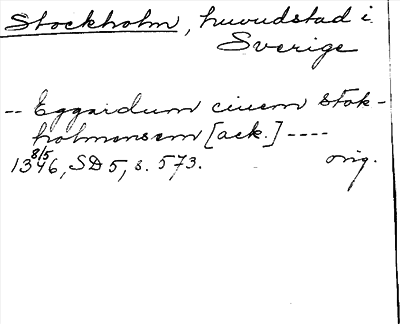 Stockholm, huvudstad i
Sverige
-- Eggardum ciuem Stok-
holmensem [ack.] ----
13 8/5 46, SD 5, s. 573. orig.